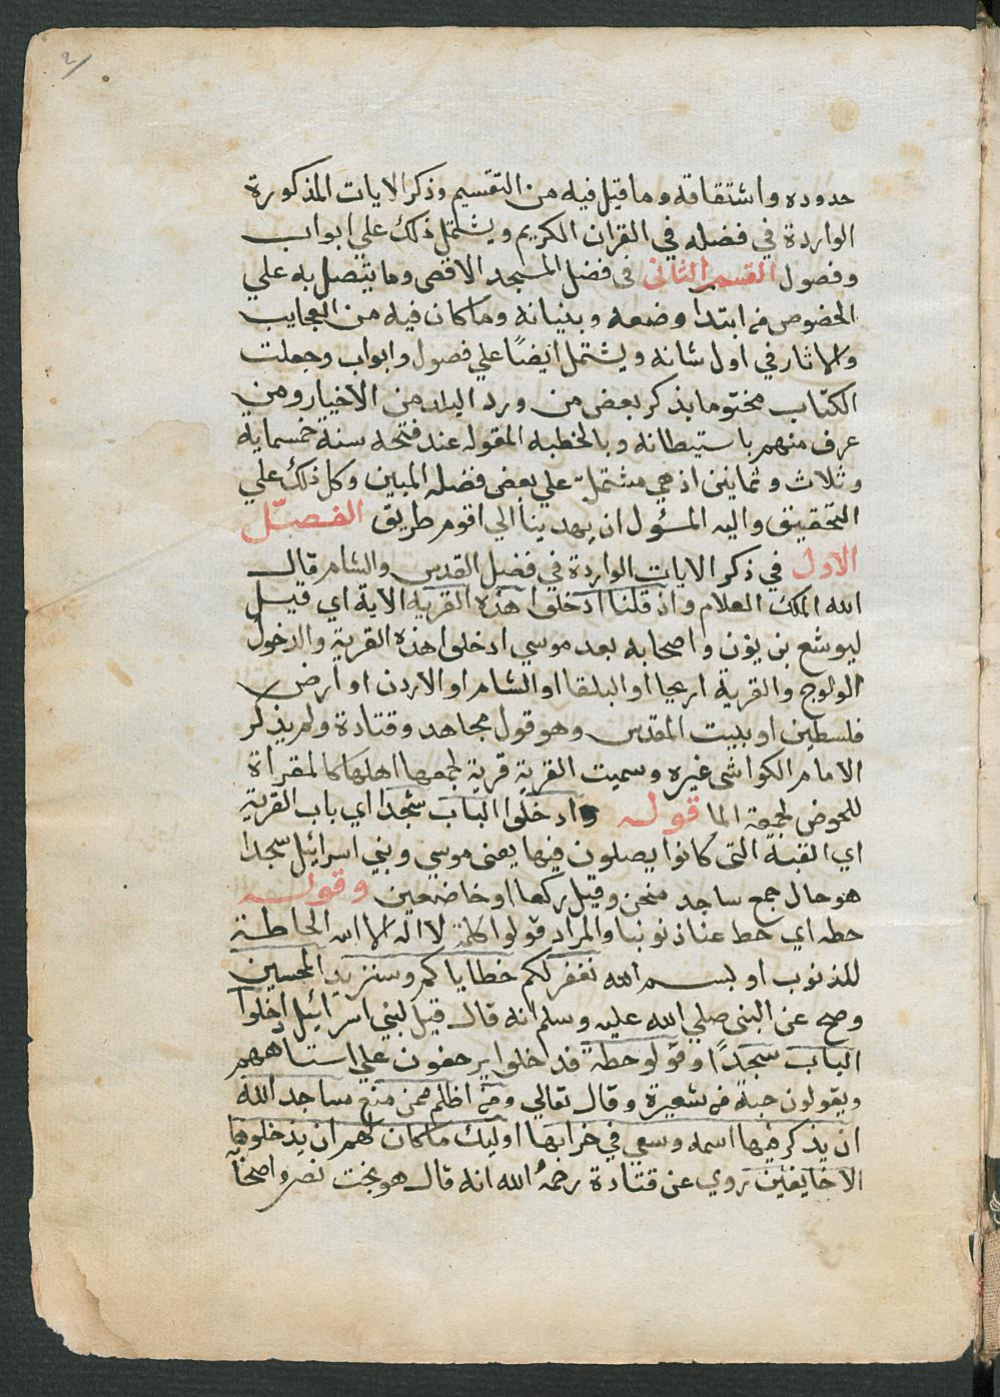 ٢
حدوده واشتقاقه وما قيل فيه من التقسيم وذكر الايات المذكورة
الواردة في فضله في القران الكريم ويشتمل ذلك علي ابواب
وفصول القسم الثاني في فضل المسجد الاقصى وما يتصل به علي
الخصوص من ابتدا وضعه وبنيانه وما كان فيه من العجايب
والاثار في اول شانه ويشتمل ايضًا علي فصول وابواب وجعلت
الكتاب مختوما بذكر بعض من ورد البلد من الاخيار ومن
عرف منهم باستيطانه وبالخطبه المقوله عند فتحه سنة خمسماية
وثلاث وثمانين اذ هي مشتملة علي بعض فضله المبين وكل ذلك علي
التحقيق واليه المسؤل ان يهدينا الي اقوم طريق الفصل
الاول في ذكر الايات الواردة في فضل القدس والشام قال
الله الملك العلام واذ قلنا ادخلوا هذه القرية الاية اي قيل
ليوشع بن يؤن واصحابه بعد موسي ادخلوا هذه القرية والدخول
الولوج والقرية اريحا او البلقا او الشام او الاردن او ارض
فلسطين او ببيت المقدس وهو قول مجاهد وقتادة ولم يذكر
الامام الكواشى غيره وسميت القرية قرية لجمعها اهلها كالمقراة
للحوض لجمعه الما قوله وادخلوا الباب سُجّدا اي باب القرية
اي القبة التى كانوا يصلون فيها يعنى موسي وبني اسرائيل سجدا
هو حال جمع ساجد منحن وقيل ركعا او خاضعين وقوله
حطه اي حط عنا ذنوبنا والمراد قولوا كلمة لا اله الا الله الحاطة
للذنوب او بسم الله نغفر لكم خطاياكم وسنزيد المحسين
وصح عن النبى صلي الله عليه وسلم انه قال قيل لبني اسرائيل ادخلوا
الباب سجدًا وقولو حطة فدخلوا يزحفون علي استاههم
ويقولون حبة من شعيرة وقال تعالي ومن اظلم ممن منع مساجد الله
ان يذكر فيها اسمه وسعي في خرابها اوليك ما كان لهم ان يدخلوها
الا خايفين روي عن قتادة رضيُ الله انه قال هو بخت نصر واصحا